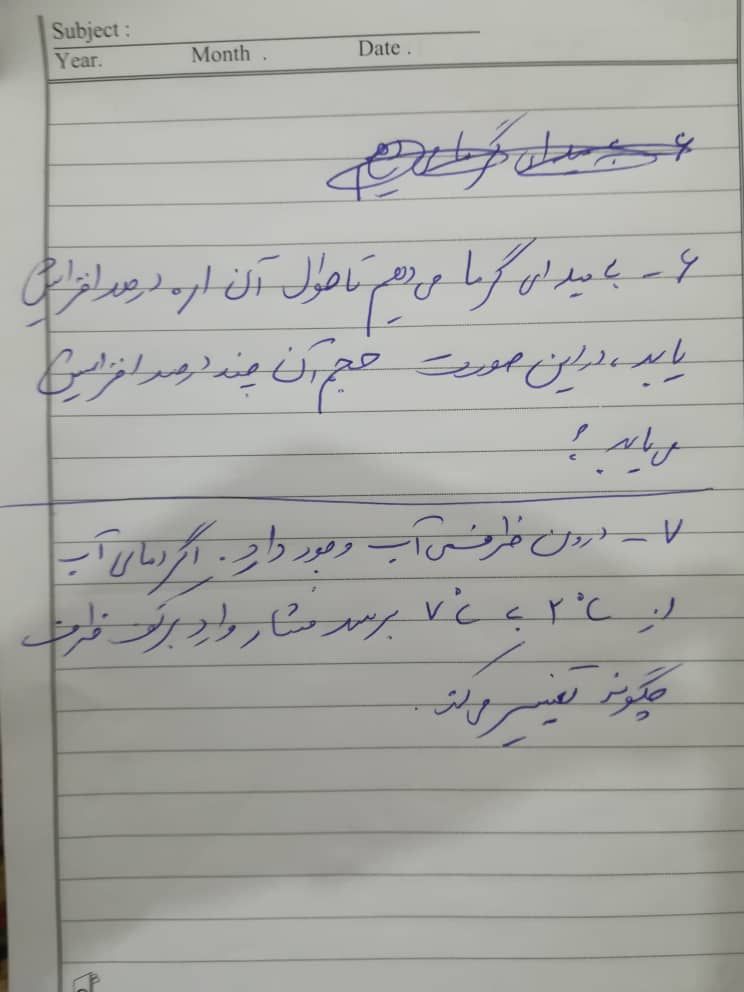 Subject :
Year. Month . Date .
۶ - به میله ای گرما می دهیم تا طول آن ۰/۱ درصد افزایش
یابد، در این صورت حجم آن چند درصد افزایش
می یابد؟
۷ - درون ظرفی آب وجود دارد. اگر دمای آب
از ۲°C به ۷°C برسد فشار وارد بر کف ظرف
چگونه تغییر می کند.